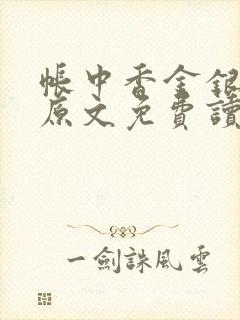 帳中香金銀
原文免費讀
一劍誅風雲